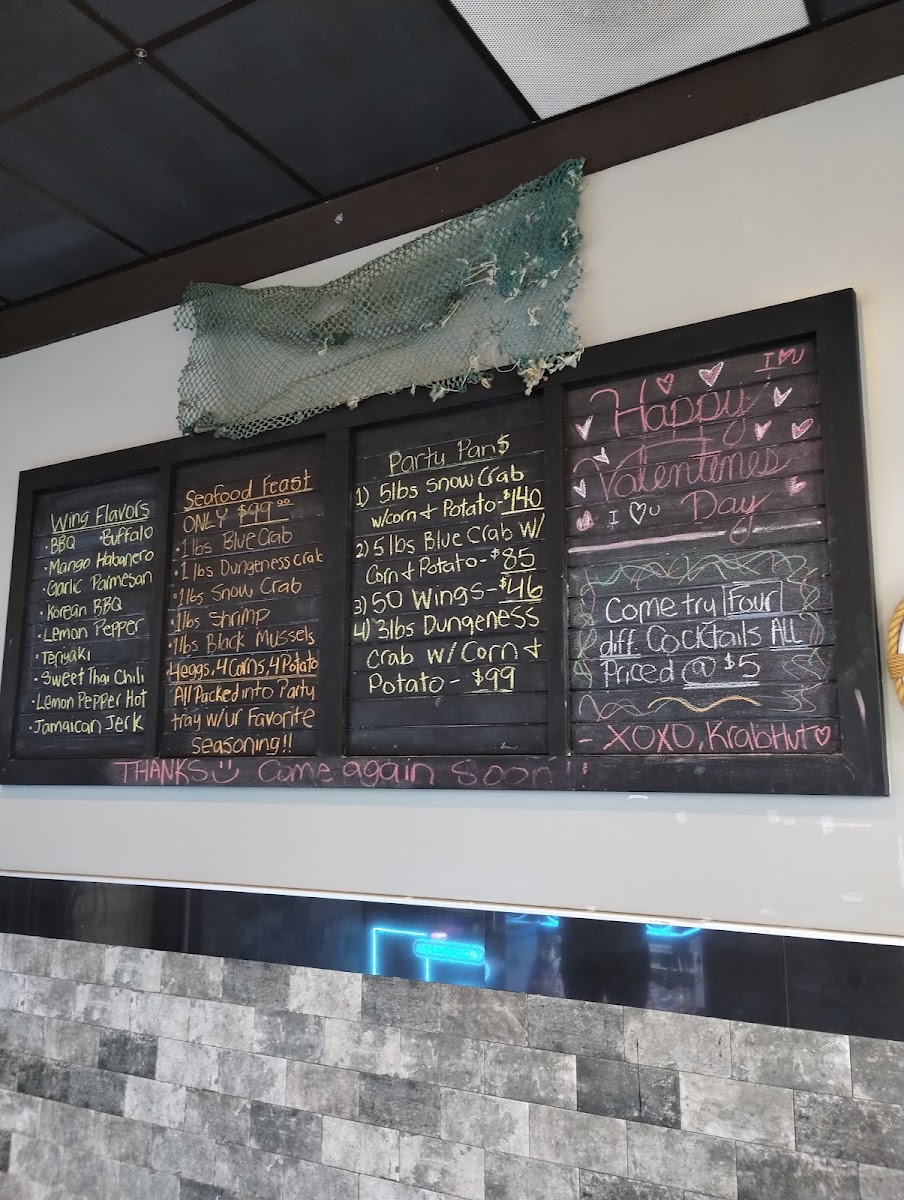 Wing Flavors
• BBQ Buffalo
• Mango Habanero
• Garlic Parmesan
• Korean BBQ
• Lemon Pepper
• Teriyaki
• Sweet Thai Chili
• Lemon Pepper Hot
• Jamaican Jerk
Seafood Feast
ONLY $99.00
• 1 lbs Blue Crab
• 1 lbs Dungeness crab
• 1 lbs Snow Crab
• 1 lbs Shrimp
• 1 lbs Black Mussels
4 eggs, 4 Corns, 4 Potato
All Packed into Party
tray w/ur Favorite
seasoning!!
Party Pan$
1) 5lbs Snow Crab
w/corn + Potato-$140
2) 5 lbs Blue Crab w/
Corn + Potato-$85
3) 50 Wings-$46
4) 3lbs Dungeness
Crab w/ Corn +
Potato - $99
I ♡ U
Happy
Valentines
Day
I ♡ U
Come try Four
diff. Cocktails ALL
Priced @ $5
- XOXO, KrabHut ♡
THANKS Come again Soon!!